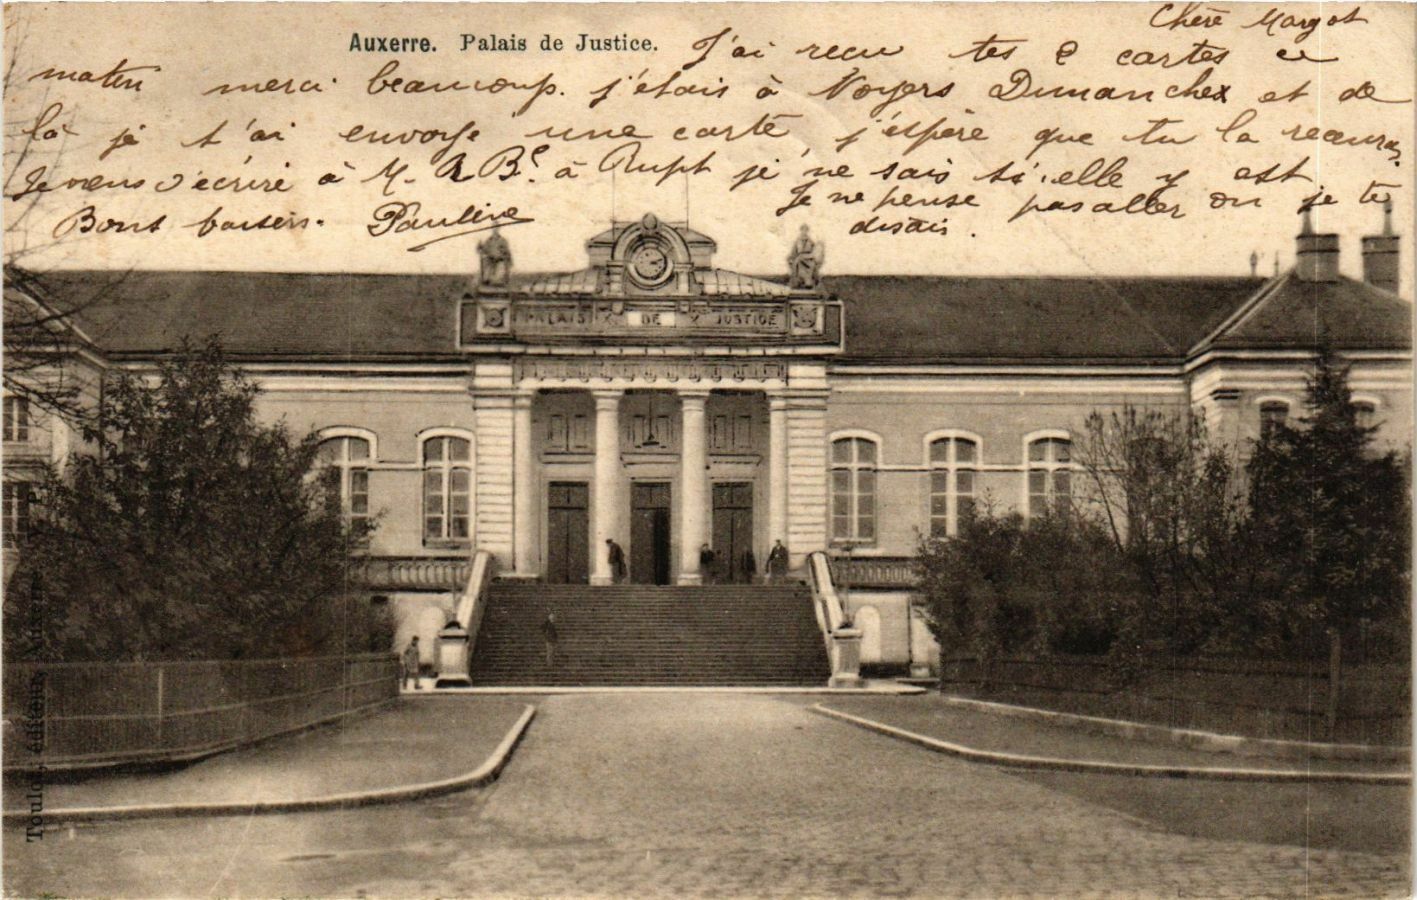 Chère Margot
Auxerre. Palais de Justice.
J'ai reçu tes 2 cartes ce
matin merci beaucoup. j'étais à Noyers Dimanche et de
là je t'ai envoyé une carte, j'espère que tu la receuras,
Je viens d'écrire à M. R B. à Rupt je ne sais si elle y est
Je ne pense pas aller ou je te
disais.
Bons baisers. Paulène
PALAIS DE JUSTICE
Toulot, éditeur, Auxerre